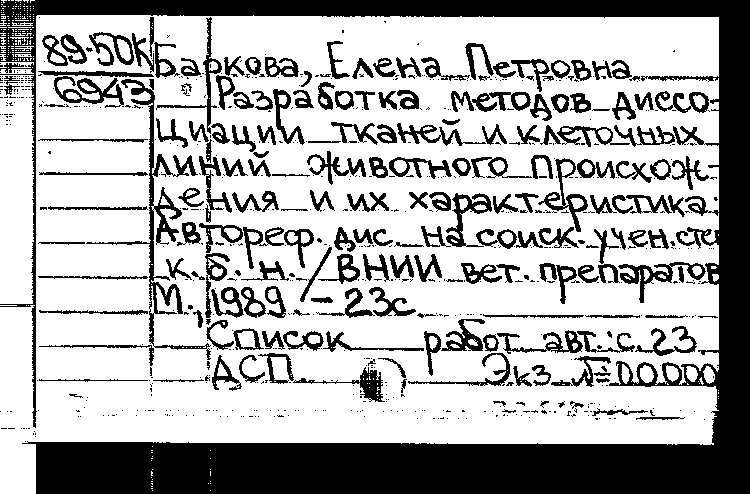 89-50К
6943
Баркова, Елена Петровна
Разработка методов диссо-
циации тканей и клеточных
линий животного происхож-
дения и их характеристика:
Автореф. дис. на соиск. учен. сте
к. б. н. / ВНИИ вет. препаратов
М., 1989. – 23с.
Список работ авт.: с. 23.
ДСП. Экз. №